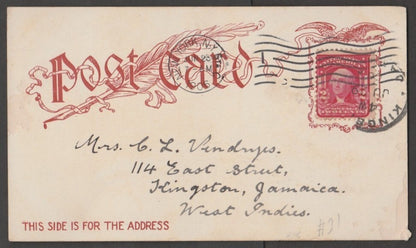 Post Card
Mrs. C. L. Vendryes.
114 East Street,
Kingston, Jamaica.
West Indies.
THIS SIDE IS FOR THE ADDRESS